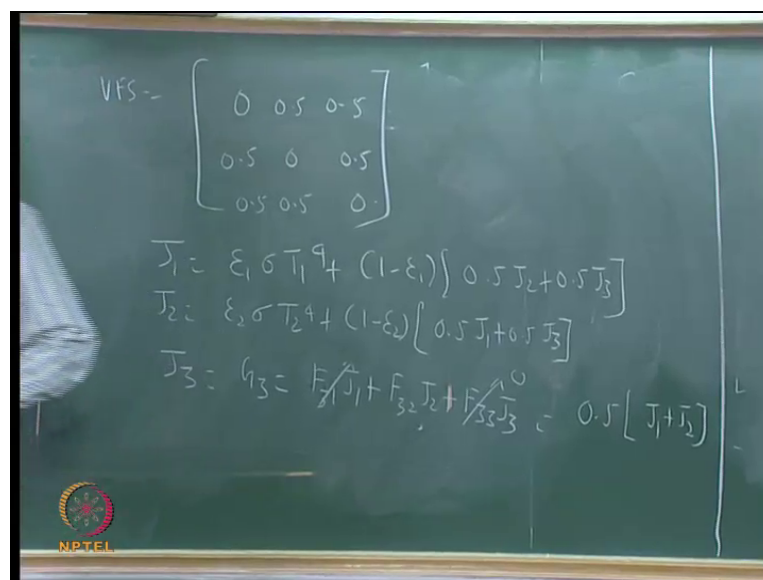 VFS =
0 0.5 0.5
0.5 0 0.5
0.5 0.5 0
J₁ = ε₁ σ T₁⁴ + (1-ε₁) [ 0.5 J₂ + 0.5 J₃ ]
J₂ = ε₂ σ T₂⁴ + (1-ε₂) [ 0.5 J₁ + 0.5 J₃ ]
J₃ = G₃ = F₃₁ J₁ + F₃₂ J₂ + F₃₃ J₃ 0 = 0.5 [ J₁ + J₂ ]
NPTEL